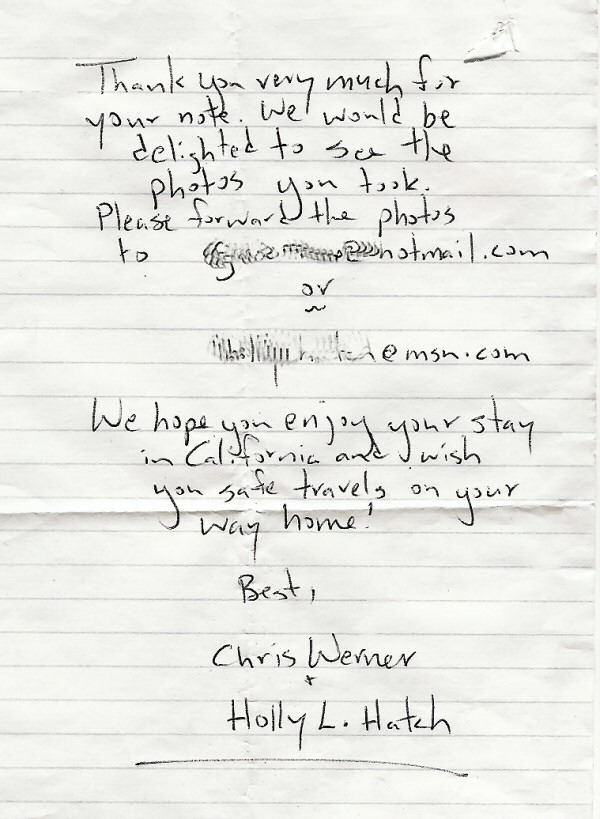 Thank you very much for
your note. We would be
delighted to see the
photos you took.
Please forward the photos
to @hotmail.com
or
@msn.com
We hope you enjoy your stay
in California and wish
you safe travels on your
way home!
Best,
Chris Werner
+
Holly L. Hatch